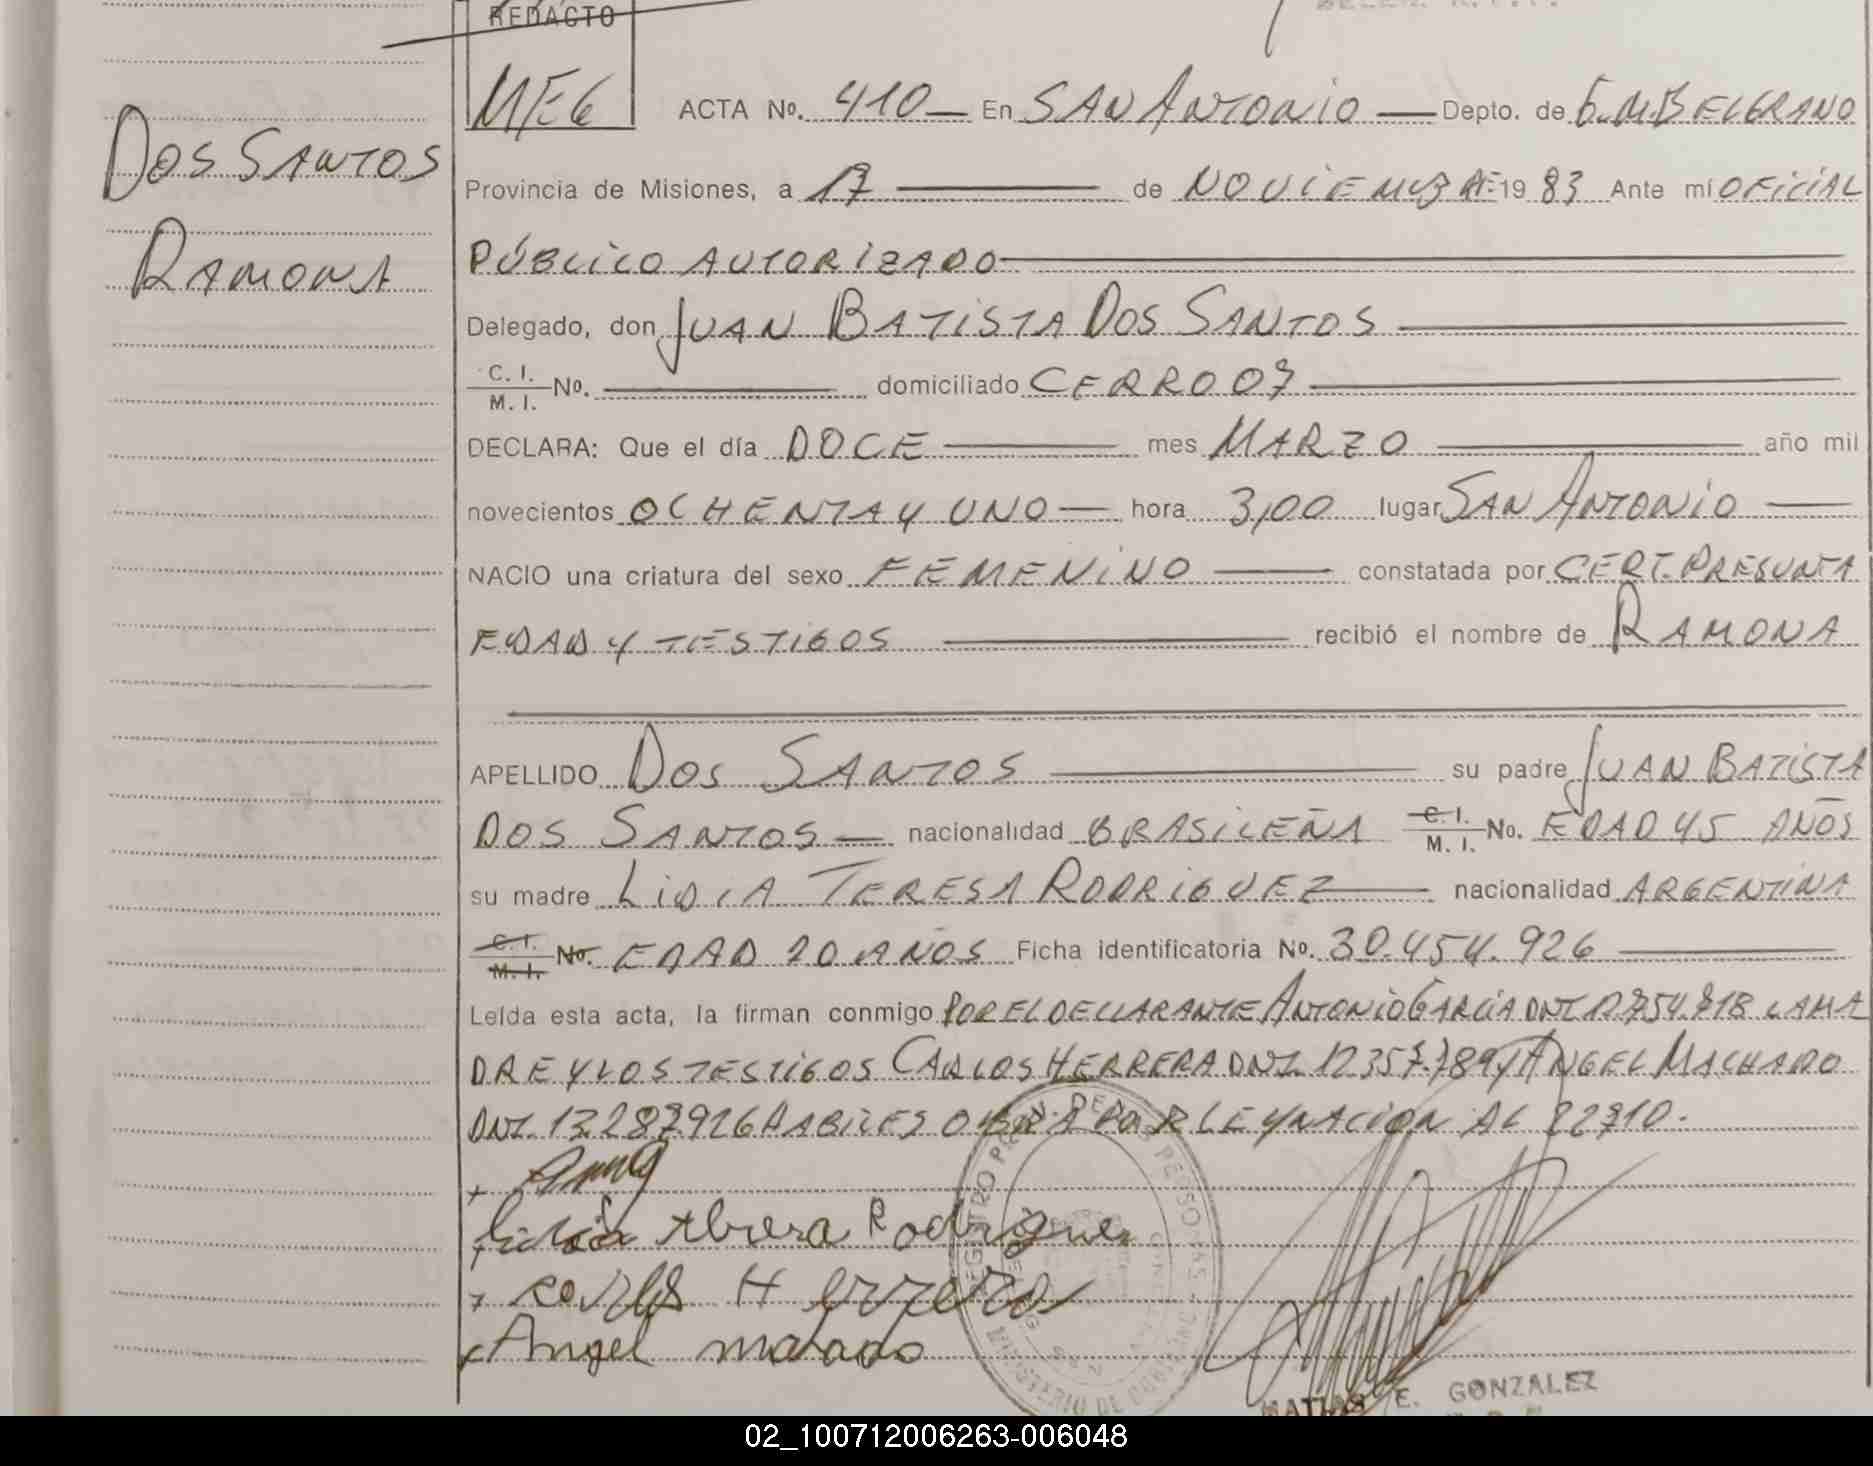 REDACTO
MEG
ACTA No. 410 — En SAN ANTONIO — Depto. de G.M.BELGRANO
DOS SANTOS
RAMONA
Provincia de Misiones, a 17 — de NOVIEMBRE 19 83 Ante mí OFICIAL
PÚBLICO AUTORIZADO
Delegado, don JUAN BATISTA DOS SANTOS
C. I.
M. I. No. — domiciliado CERRO 07
DECLARA: Que el día DOCE — mes MARZO — año mil
novecientos OCHENTA Y UNO — hora 3,00 lugar SAN ANTONIO —
NACIO una criatura del sexo FEMENINO — constatada por CERT. PRESUNTA
EDAD Y TESTIGOS — recibió el nombre de RAMONA
APELLIDO DOS SANTOS — su padre JUAN BATISTA
DOS SANTOS — nacionalidad BRASILEÑA C. I. M. I. No. EDAD 45 AÑOS
su madre LIDIA TERESA RODRIGUEZ — nacionalidad ARGENTINA
C. I. M. I. No. EDAD 20 AÑOS Ficha identificatoria No. 30.454.926
Leída esta acta, la firman conmigo POR EL DECLARANTE ANTONIO GARCIA DNI LA MA
DRE Y LOS TESTIGOS CARLOS HERRERA DNI 12357.789 Y ANGEL MACHADO
DNI. 13287926 HABILES OBRA POR LEY NACIONAL 22710.
Rodriguez
Herrera
Angel
REGISTRO PERSONAS
MINISTERIO DE GOBIERNO
MATIAS E. GONZALEZ
02_100712006263-006048